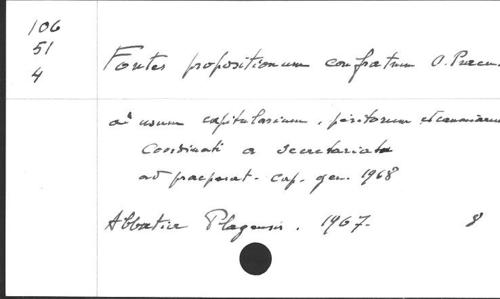 106
51
4
Fontes propositionum confratrum O. Praem.
ad usum capitularium, peritorum et
Coordinati a secretariatu
ad praeparat. cap. gen. 1968
Abbatia Plagensis. 1967. 8